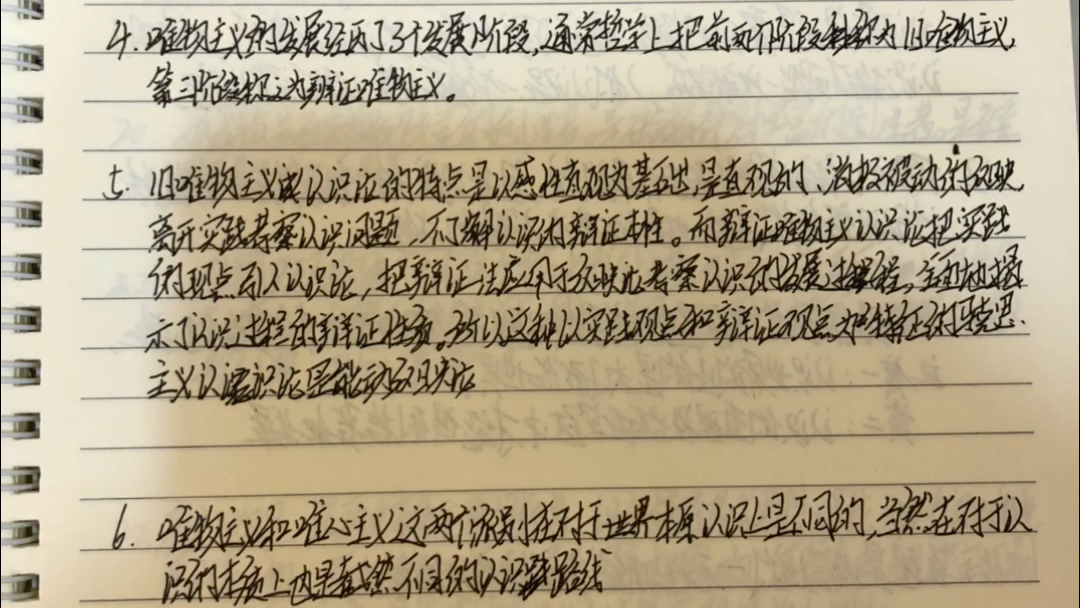 4. 唯物主义的发展经历了3个发展阶段,通常哲学上把前两个阶段称为旧唯物主义,
第三阶段称之为辩证唯物主义。
5. 旧唯物主义认识论的特点是以感性直观为基础,是直观的、消极被动的反映,
离开实践考察认识问题,不了解认识的辩证本性。而辩证唯物主义认识论把实践
的观点引入认识论,把辩证法应用于反映论考察认识的发展过程,全面地揭
示了认识过程的辩证性质。所以这种以实践观点和辩证观点为特征的马克思
主义认识论是能动反映论
6. 唯物主义和唯心主义这两个派别在对于世界本原认识上是不同的,当然在对于认
识的本质上也是截然不同的认识路线